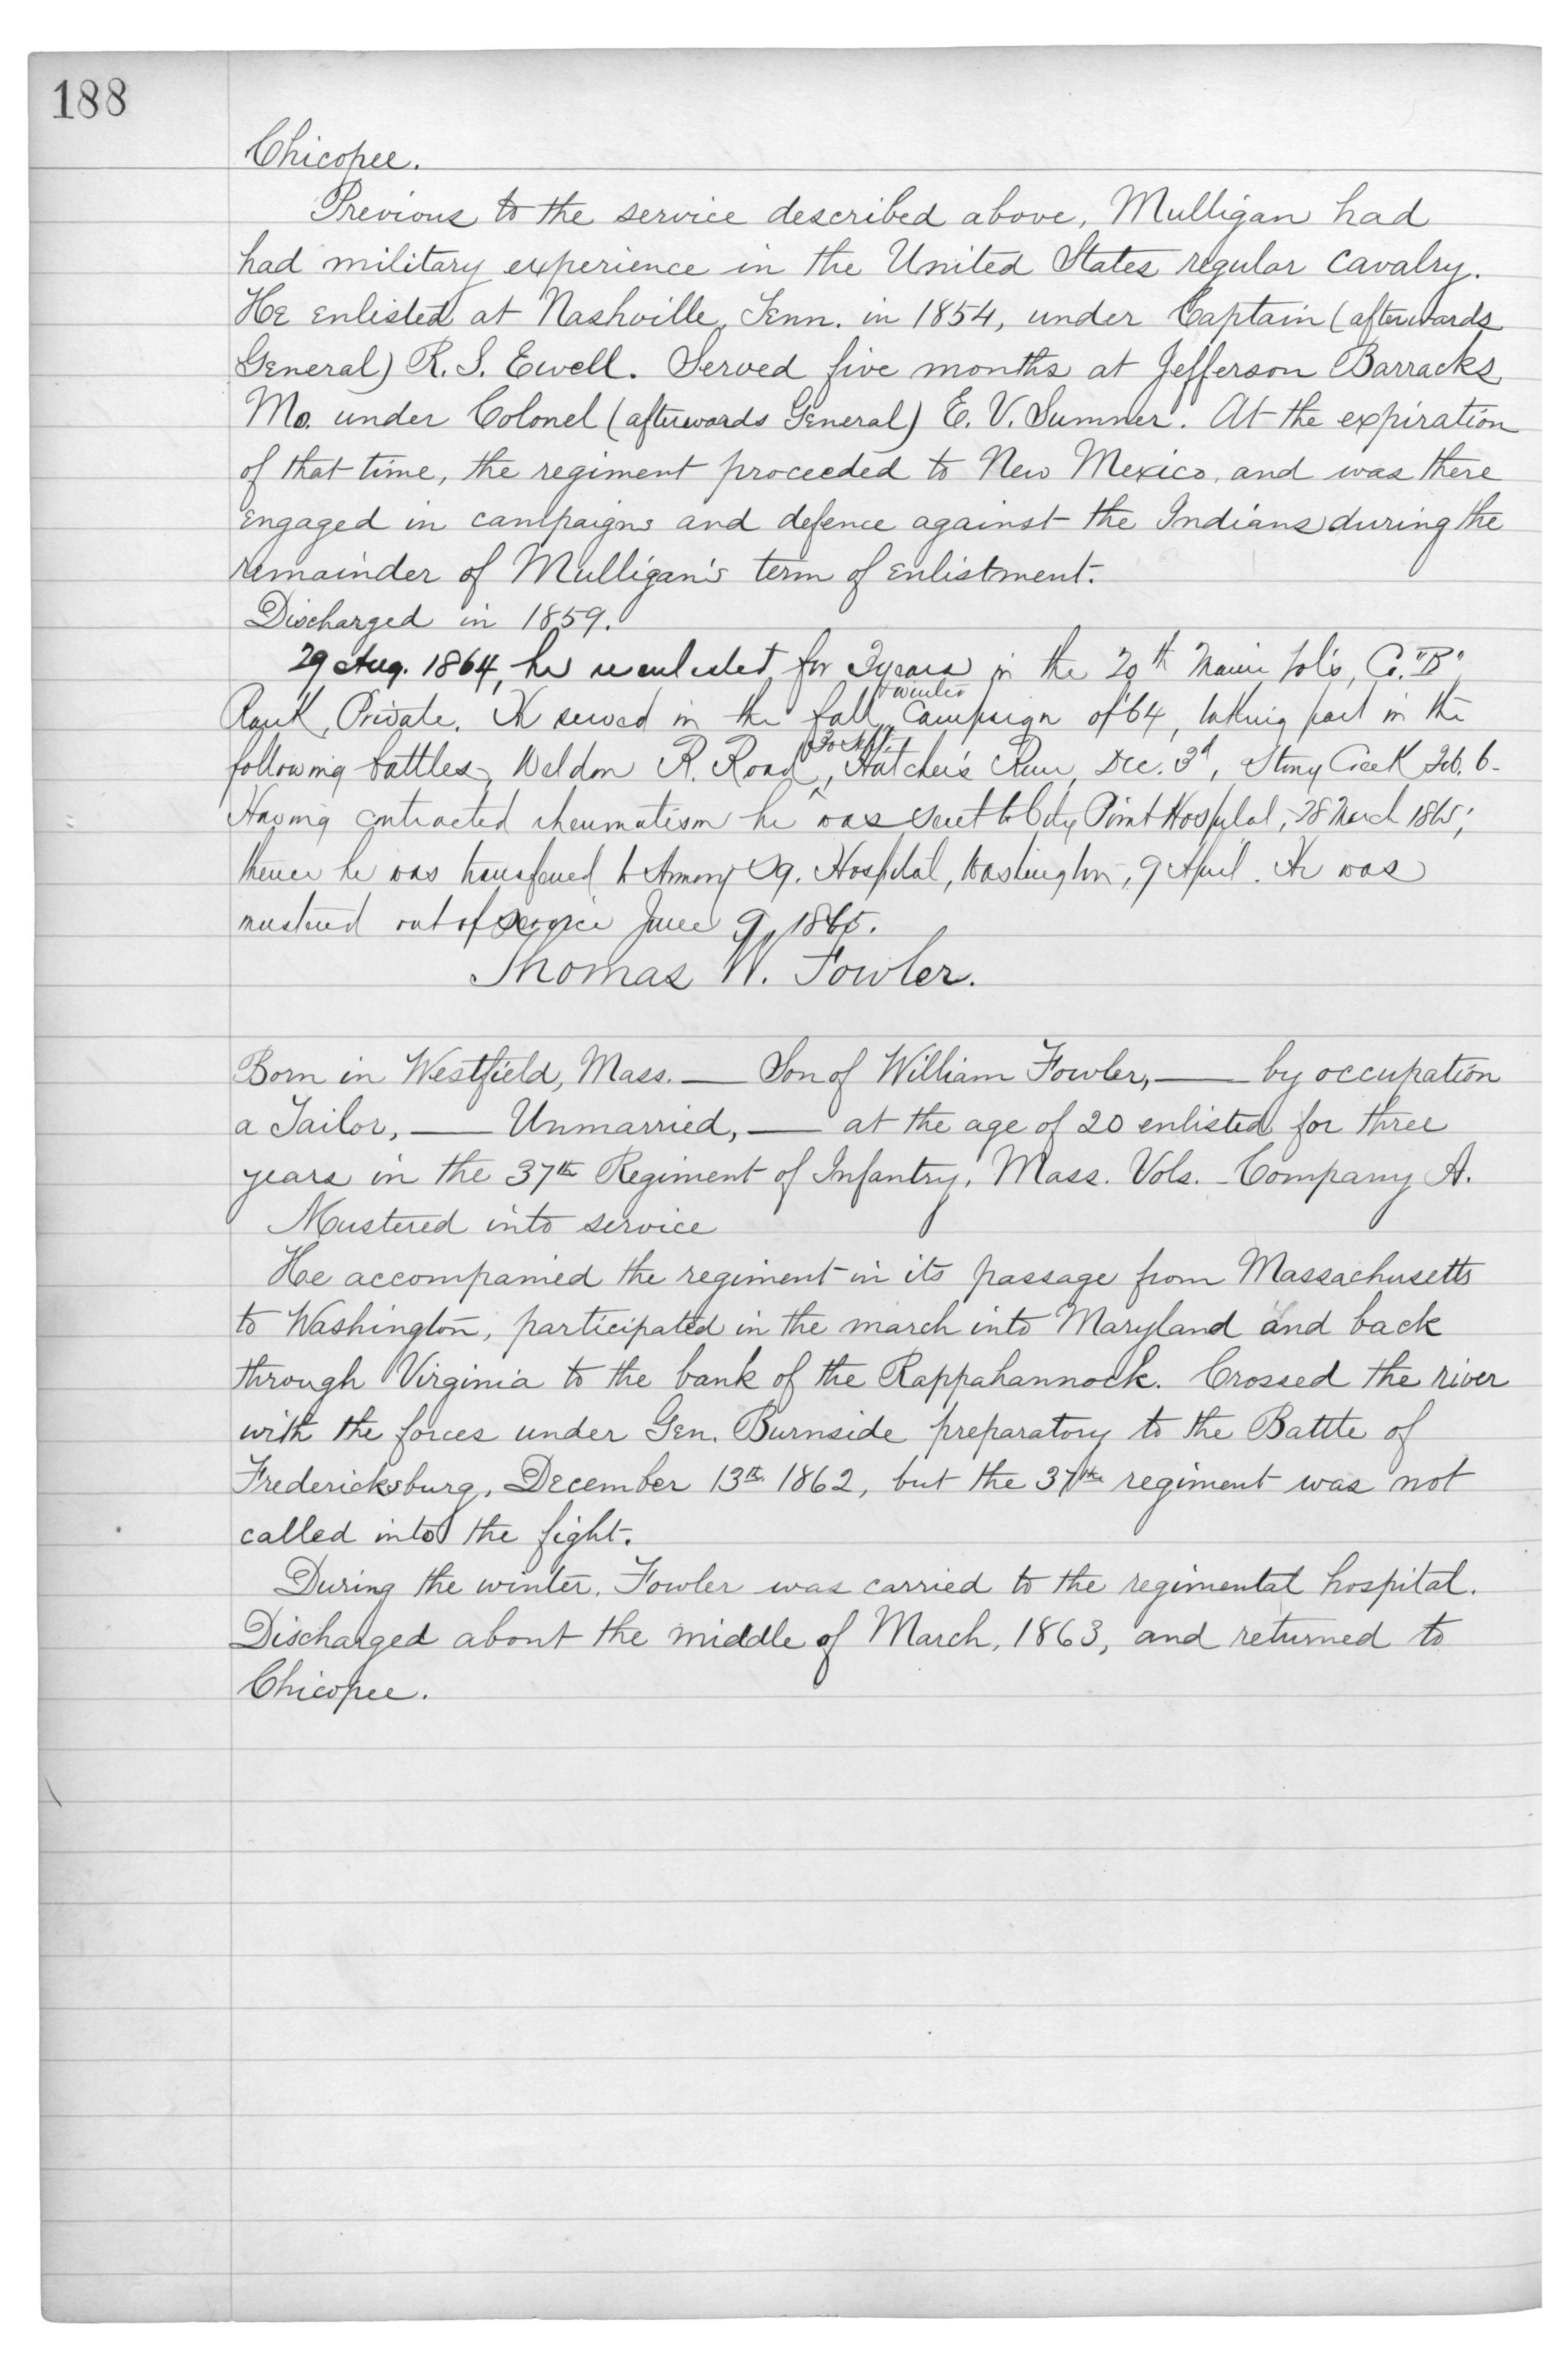 188
Chicopee.
Previous to the service described above, Mulligan had
had military experience in the United States regular cavalry.
He enlisted at Nashville, Tenn. in 1854, under Captain (afterwards
General) R. S. Ewell. Served five months at Jefferson Barracks
Mo. under Colonel (afterwards General) E. V. Sumner. At the expiration
of that time, the regiment proceeded to New Mexico, and was there
engaged in campaigns and defence against the Indians during the
remainder of Mulligan's term of enlistment.
Discharged in 1859.
29 Aug. 1864, he reenlisted for 3 years in the 20th Maine Vols, Co. "B",
Rank, Private. He served in the fall + winter Campaign of '64, taking part in the
following battles, Weldon R. Road, 30 Sept. Hatcher's Run, Dec. 3d, Stony Creek Feb. 6-
Having contracted rheumatism he was sent to City Point Hospital, 28 March 1865;
thence he was transferred to Armory Sq. Hospital, Washington, 9 April. He was
mustered out of service June 9, 1865.
Thomas W. Fowler.
Born in Westfield, Mass. — Son of William Fowler, — by occupation
a Tailor, — Unmarried, — at the age of 20 enlisted for three
years in the 37th Regiment of Infantry, Mass. Vols. - Company A.
Mustered into service
He accompanied the regiment in its passage from Massachusetts
to Washington, participated in the march into Maryland and back
through Virginia to the bank of the Rappahannock. Crossed the river
with the forces under Gen. Burnside preparatory to the Battle of
Fredericksburg, December 13th 1862, but the 37th regiment was not
called into the fight.
During the winter, Fowler was carried to the regimental hospital.
Discharged about the middle of March, 1863, and returned to
Chicopee.